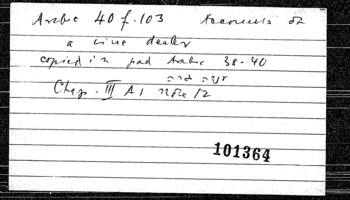 Arabic 40 f. 103 Accounts of
a wine dealer
copied in pad Arabic 38-40
Chap. III A1 note 12
101364